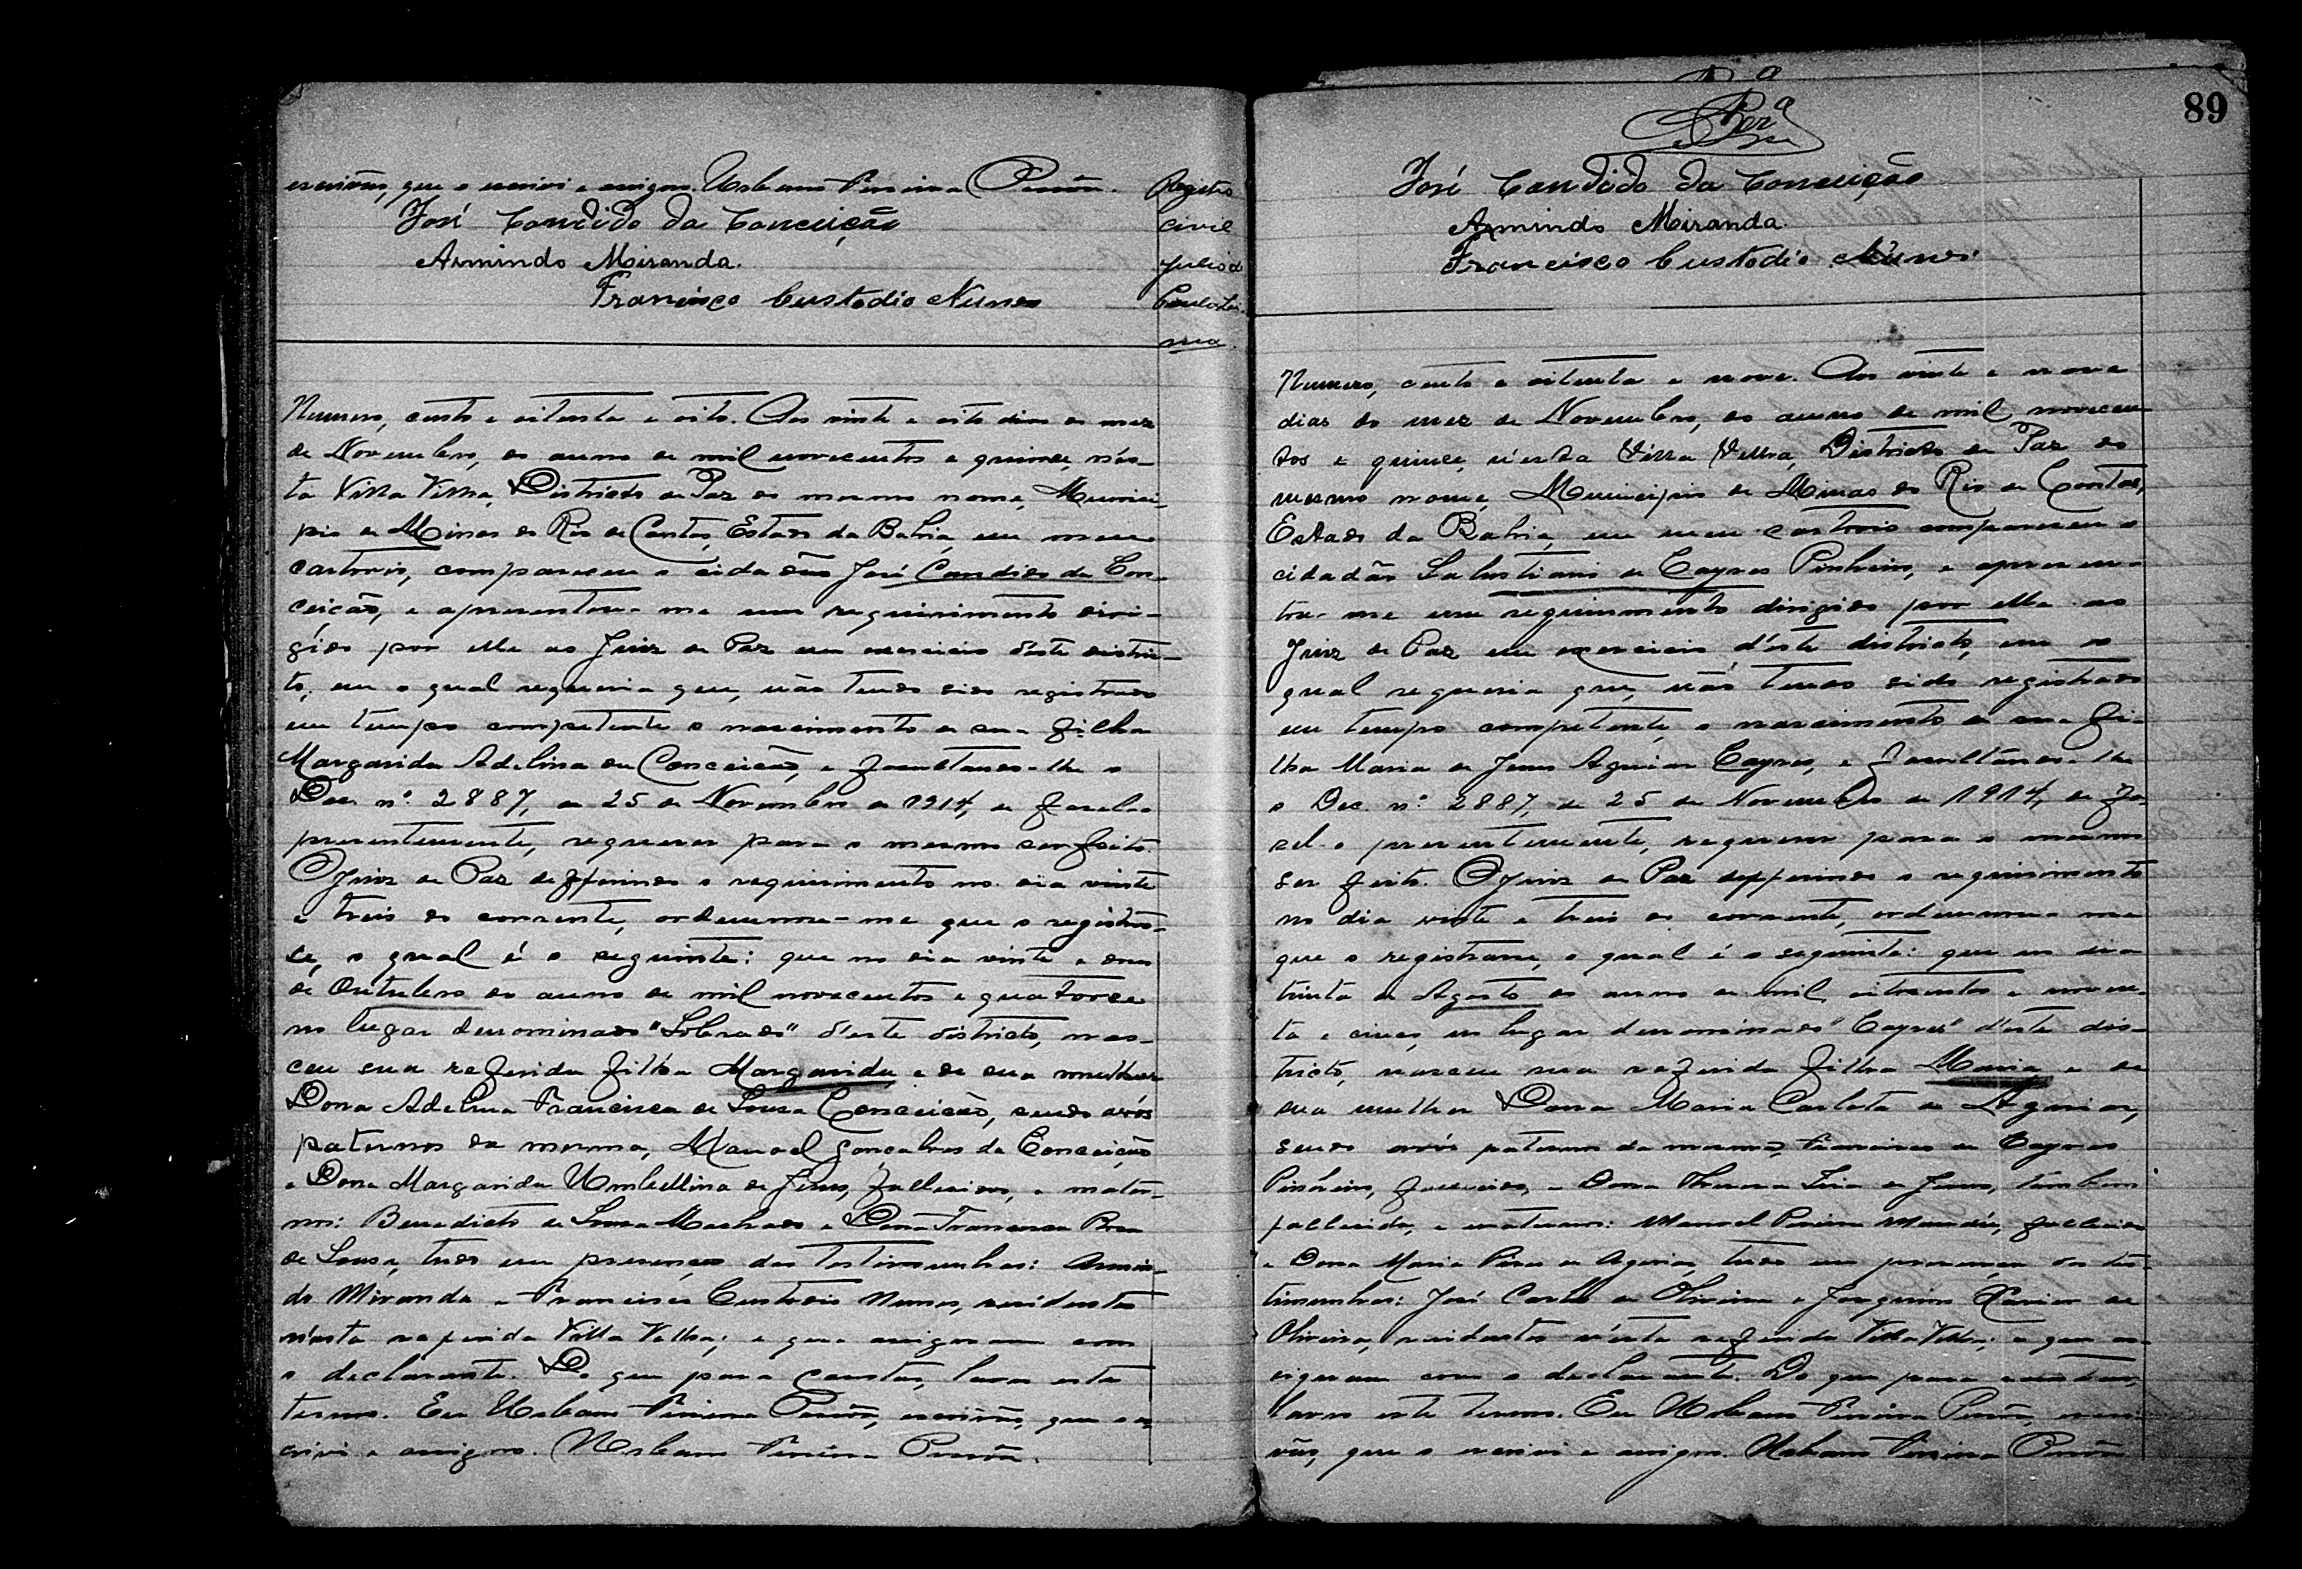 escrivão, que o escrivi e assigno. Urbano Pereira
José Candido da Conceição
Armindo Miranda.
Francisco Custodio Nunes
Registro
civil
Numero, cento e oitenta e oito. Aos vinte e oito dias do mez
de Novembro, do anno de mil novecentos e quinze, n'és-
ta Villa Velha, Districto de Paz do mesmo nome, Munici-
pio de Minas do Rio de Contas, Estado da Bahia, em meu
cartorio, compareceu o cidadão José Candido da Con-
ceição, e apresentou-me um requirimento diri-
gido por elle ao Juiz de Paz em exercicio d'este distric-
to, em o qual requeria que, não tendo sido registrado
em tempo competente o nascimento de sua filha
Margarida Adelina da Conceição, e facultando-lhe o
Dec. nº 2887, de 25 de Novembro de 1914, de fazel-o
presentemente, requerer para o mesmo ser feito.
O Juiz de Paz defferindo o requirimento no dia vinte
e treis do corrente, ordenou-me que o registras-
se, o qual é o seguinte: que no dia vinte e
de Outubro do anno de mil novecentos e quatorze
no lugar denominado "Sobrado" d'este districto, nas-
ceu sua referida filha Margarida e de sua mulher
Dona Adelina Francisca de Sousa Conceição, sendo avós
paternos da mesma, Manoel Gonçalves da Conceição
e Dona Margarida Umbellina de Jesus, fallecidos, e mater-
nos: Benedicto de Sousa Machado e Dona Francisca Rosa
de Sousa, tudo em presença das testimunhas: Armin-
do Miranda e Francisco Custodio Nunes, residentes
n'esta referida Villa Velha; e que assignaram com
o declarante. Do que para constar, lavro este
termo. Eu Urbano Pereira escrivão, que o es-
crivi e assigno. Urbano Pereira
89
José Candido da Conceição
Armindo Miranda.
Francisco Custodio Nunes
Numero, cento e oitenta e nove. Aos vinte e nove
dias do mez de Novembro, do anno de mil novecen-
tos e quinze, n'esta Villa Velha, Districto de Paz do
mesmo nome, Municipio de Minas do Rio de Contas,
Estado da Bahia, em meu cartorio compareceu o
cidadão Salustiano de Cayres Pinheiro, e apresen-
tou-me um requirimento dirigido por elle ao
Juiz de Paz em exercicio d'este districto, em o
qual requeria que, não tendo sido registrado
em tempo competente o nascimento de sua fi-
lha Maria de Jesus Aguiar Cayres, e facultando-lhe
o Dec. nº 2887, de 25 de Novembro de 1914, de fa-
zel-o presentemente, requerer para o mesmo
ser feito. O Juiz de Paz defferindo o requirimento
no dia vinte e treis do corrente, ordenou-me
que o registrasse, o qual é o seguinte: que no dia
trinta de Agosto do anno de mil oitocentos e noven-
ta e cinco, no lugar denominado "Cayres" d'este dis-
tricto, nasceu sua referida filha Maria e de
sua mulher Dona Maria Carlota de Aguiar,
sendo avós paternos da mesma, Francisco de Cayres
Pinheiro, fallecido, e Dona de Jesus, tambem
fallecida, e maternos: Manoel Pereira fallecido
e Dona Maria de Aguiar tudo em presença das tes-
timunhas: José Carlos de Oliveira e Joaquim Xavier de
Oliveira, residentes n'esta referida Villa Velha; e que as-
signaram com o declarante. Do que para constar,
lavro este termo. Eu Urbano Pereira escri-
vão, que o escrivi e assigno. Urbano Pereira